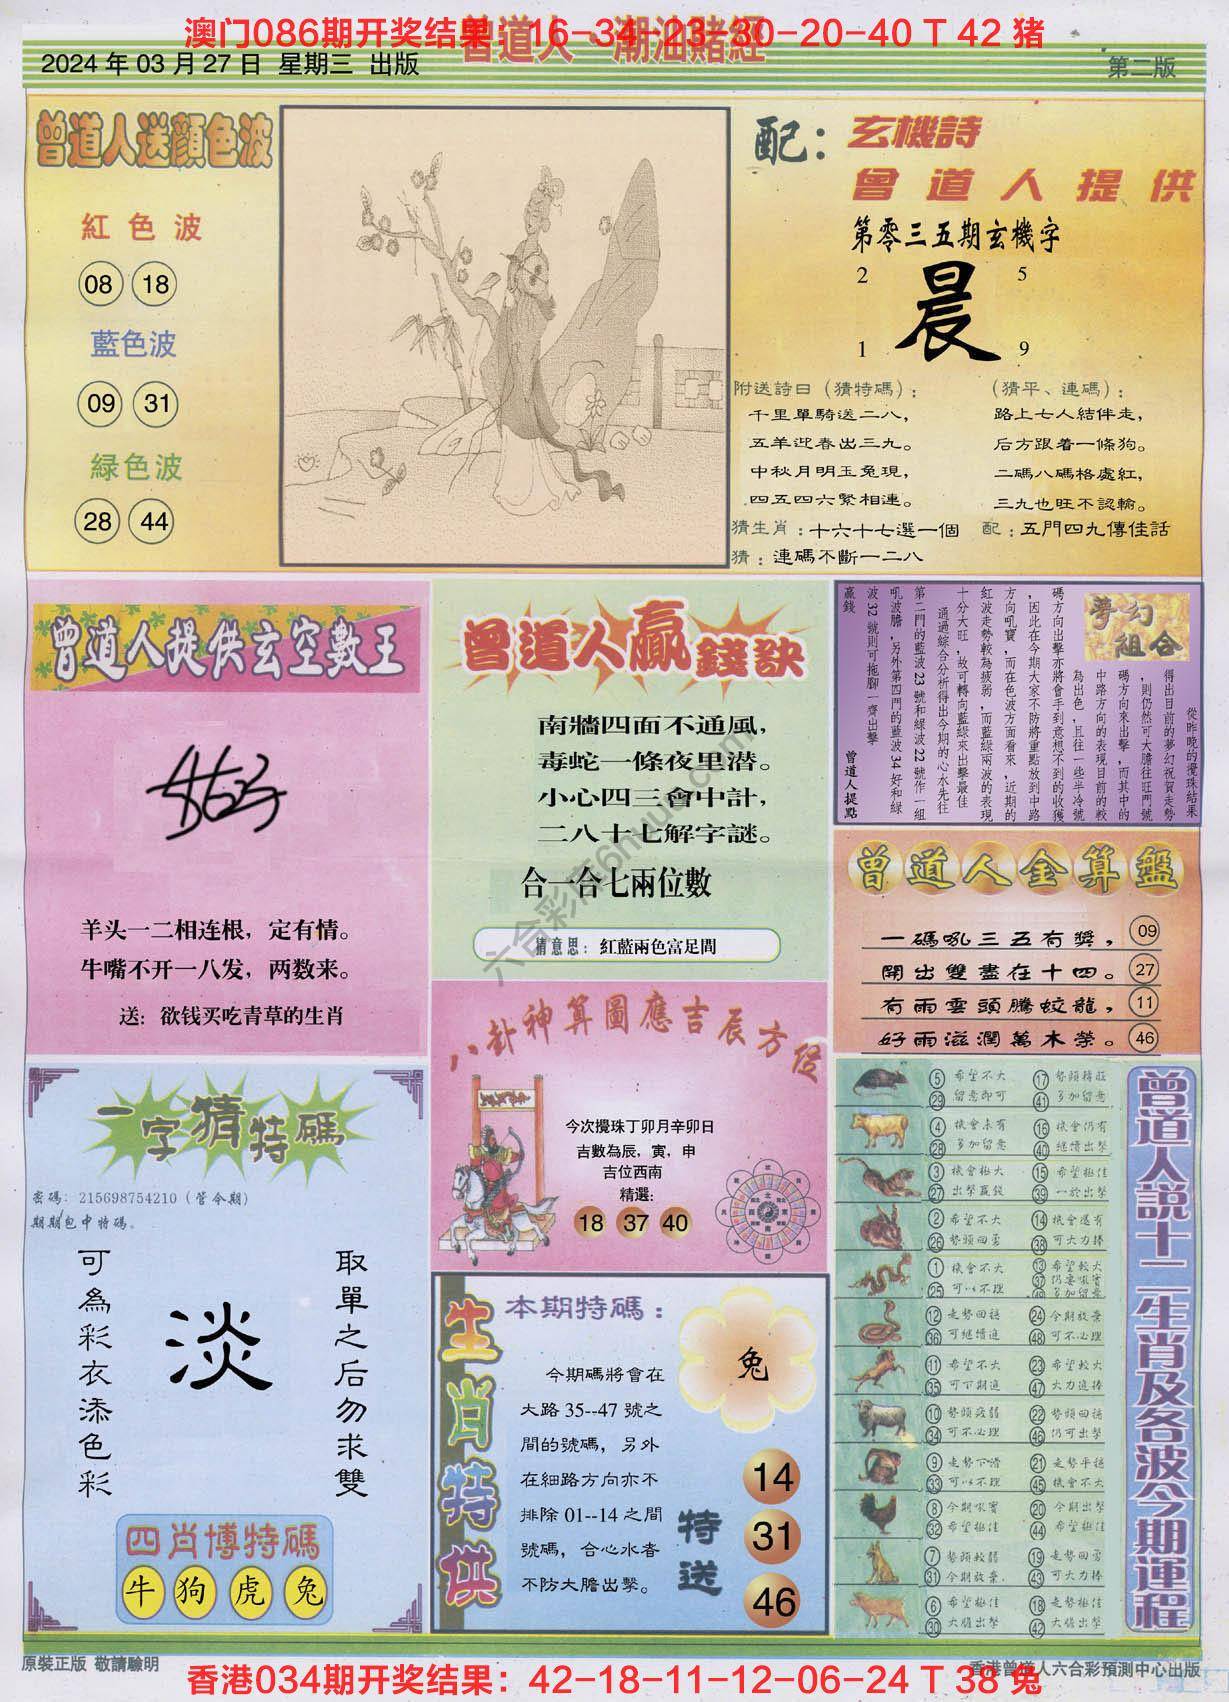 澳门086期开奖结果：16-34-23-30-20-40 T 42 猪
曾道人·潮汕賭經
2024 年 03 月 27 日 星期三 出版
第二版
曾道人送顏色波
紅色波
08 18
藍色波
09 31
緑色波
28 44
配：玄機詩
曾道人提供
第零三五期玄機字
2 5
晨
1 9
附送詩曰（猜特碼）：
千里單騎送二八，
五羊迎春出三九。
中秋月明玉兔現，
四五四六緊相連。
猜生肖：十六十七選一個
猜：連碼不斷一二八
（猜平、連碼）：
路上七人結伴走，
后方跟着一條狗。
二碼八碼格處紅，
三九也旺不認輸。
配：五門四九傳佳話
曾道人提供玄空數王
羊头一二相连根，定有情。
牛嘴不开一八发，两数来。
送：欲钱买吃青草的生肖
曾道人贏錢訣
南牆四面不通風，
毒蛇一條夜里潜。
小心四三會中計，
二八十七解字謎。
合一合七兩位數
猜意思：紅藍兩色富足間
夢幻組合
從昨晚的攪珠結果
得出目前的夢幻祝賀走勢
，則仍然可大膽往旺門號
碼方向來出擊，而其中的
中路方向的表現目前的較
為出色，且往一些半冷號
碼方向出擊亦將會手到意想不到的收獲
，因此在今期大家不防將重點放到中路
方向吼寶，而在色波方面看來，近期的
紅波走勢較為疲弱，而藍綠兩波的表現
十分大旺，故可轉向藍綠來出擊最佳
通過綜合分析得出今期的心水先往
第二門的藍波 23 號和綠波 22 號作一組
吼波膽，另外第四門的藍波 34 好和綠
波 32 號則可拖腳一齊出擊
贏錢
曾道人提點
曾道人金算盤
一碼吼三五有獎， 09
開出雙盡在十四。 27
有雨雲頭騰蛟龍， 11
好雨滋潤萬木榮。 46
八卦神算圖應吉辰方位
今次攪珠丁卯月辛卯日
吉數為辰，寅，申
吉位西南
精選：
18 37 40
一字猜特碼
密碼：215698754210（管今期）
期期包中特碼。
取單之后勿求雙
淡
可為彩衣添色彩
四肖博特碼
牛 狗 虎 兔
生肖特供
本期特碼：
兔
今期碼將會在
大路 35--47 號之
間的號碼，另外
在細路方向亦不
排除 01--14 之間
號碼，合心水者
不防大膽出擊。
特送
14
31
46
曾道人說十二生肖及各波今期運程
5 希望不大 17 勢頭精旺
29 留意即可 41 多加留意
4 機會未有 16 機會仍有
28 多加留意 40 继續出擊
3 機會極大 15 希望極佳
27 出擊贏錢 39 一於出擊
2 希望不大 14 機會還有
26 勢頭回勇 38 可大力捧
1 機會不大 13 希望較大
25 可以不理 37 仍要吼實
49 多加留意
12 走勢回穩 24 今期放棄
36 可继續追 48 可不必理
11 希望不大 23 希望較大
35 可下期追 47 大力追捧
10 勢頭疲弱 22 勢頭回穩
34 可不必理 46 仍可出擊
9 走勢下滑 21 走勢平穩
33 可以不理 45 機會不大
8 今期吼實 20 今期出擊
32 希望極佳 44 希望極佳
7 勢頭較弱 19 走勢回勇
31 今期放棄 43 可大力捧
6 希望極佳 18 走勢極佳
30 大膽出擊 42 大膽出擊
六合彩库6hyuo.com
原裝正版 敬請驗明
香港曾道人六合彩預測中心出版
香港034期开奖结果：42-18-11-12-06-24 T 38 兔